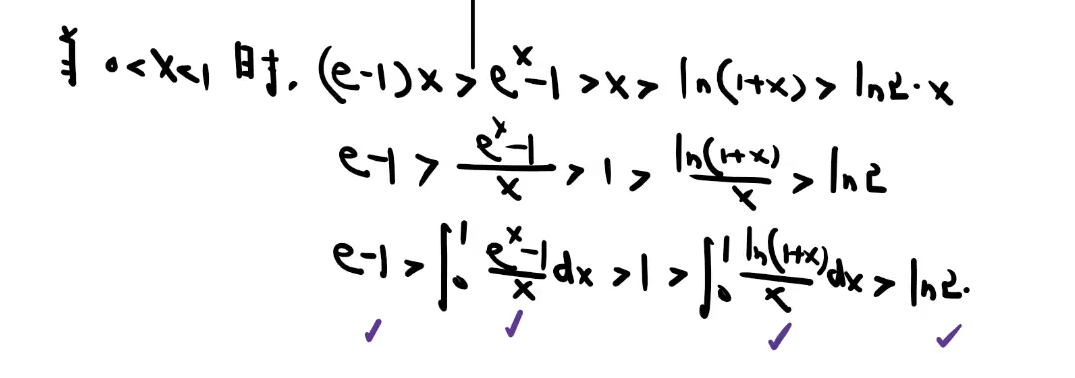 当 0<x<1 时. (e-1)x > e^x-1 > x > ln(1+x) > ln2·x
e-1 > \frac{e^x-1}{x} > 1 > \frac{ln(1+x)}{x} > ln2
e-1 > ∫_0^1 \frac{e^x-1}{x} dx > 1 > ∫_0^1 \frac{ln(1+x)}{x} dx > ln2.
✓ ✓ ✓ ✓